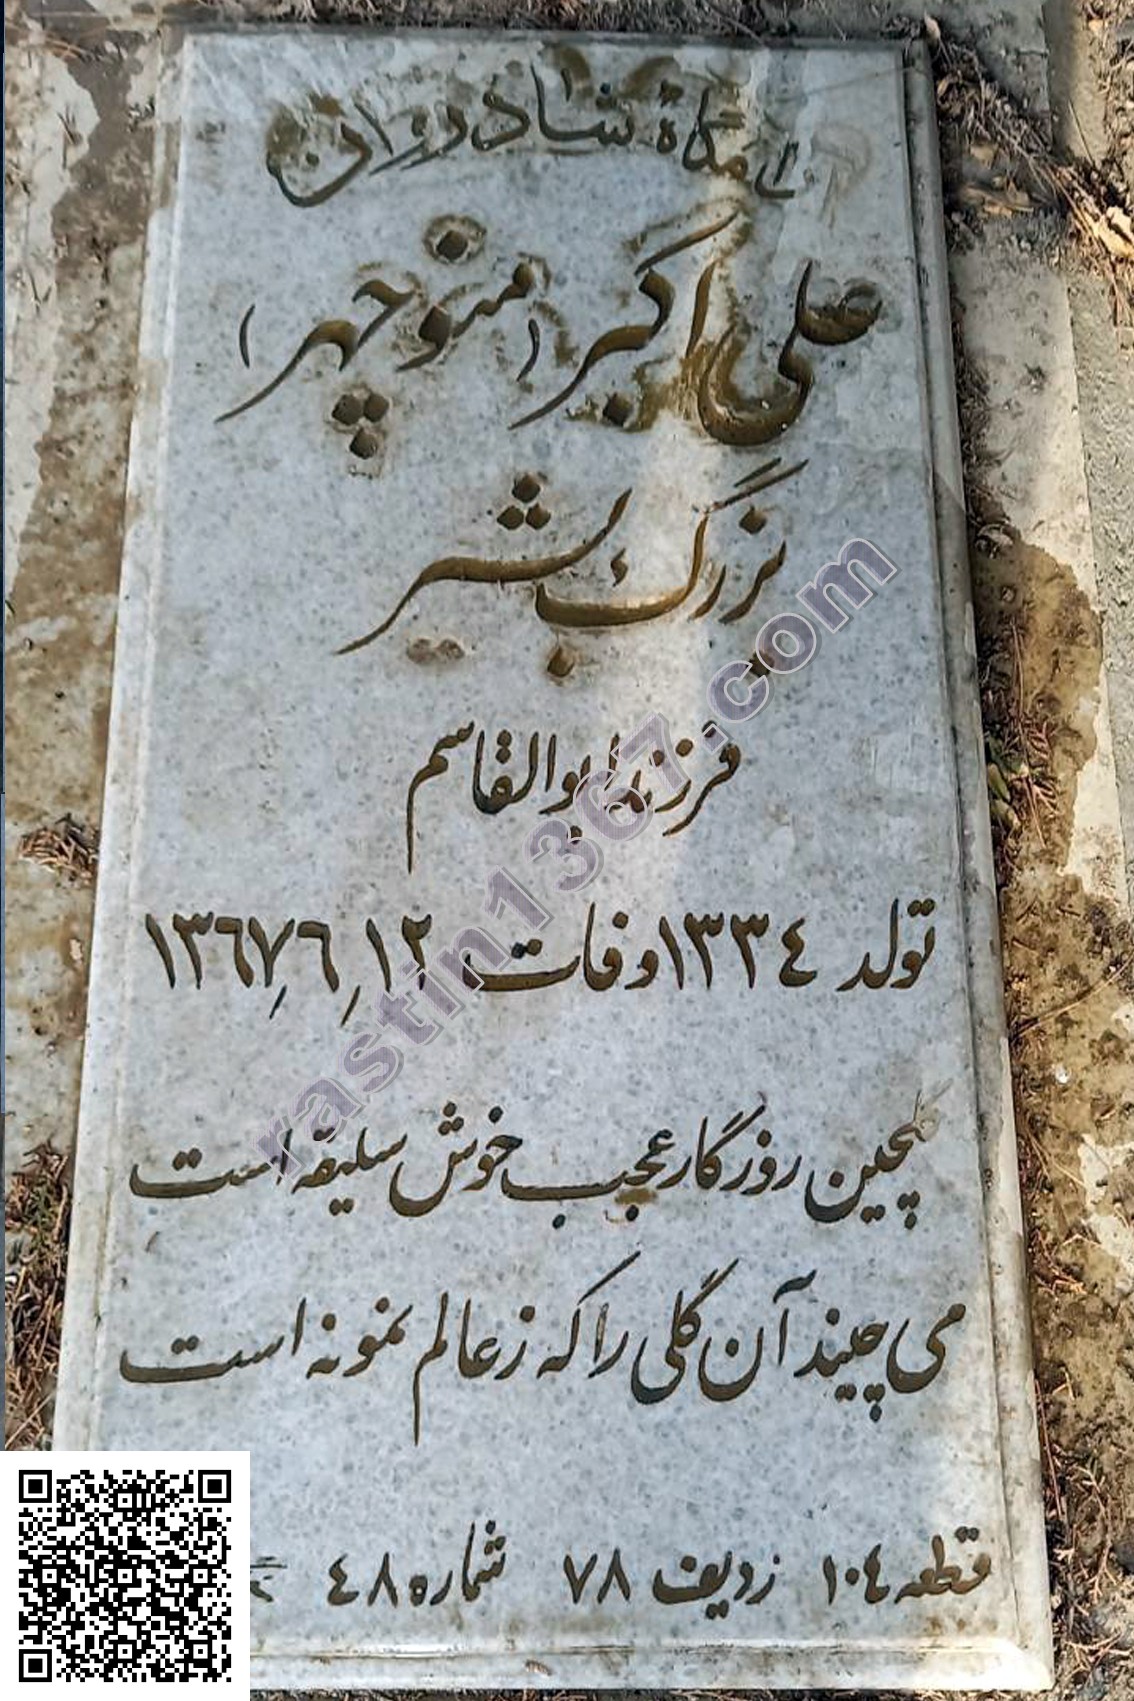 آرامگاه شادروان
علی اکبر (منوچهر)
بزرگ بشیر
فرزند ابوالقاسم
تولد ۱۳۳٤ وفات ۱۲/٦/۱۳٦۷
گلچین روزگار عجب خوش سلیقه است
می چیند آن گلی را که ز عالم نمونه است
قطعه ۱۰٤ ردیف ۷۸ شماره ٤۸
rastin1367.com